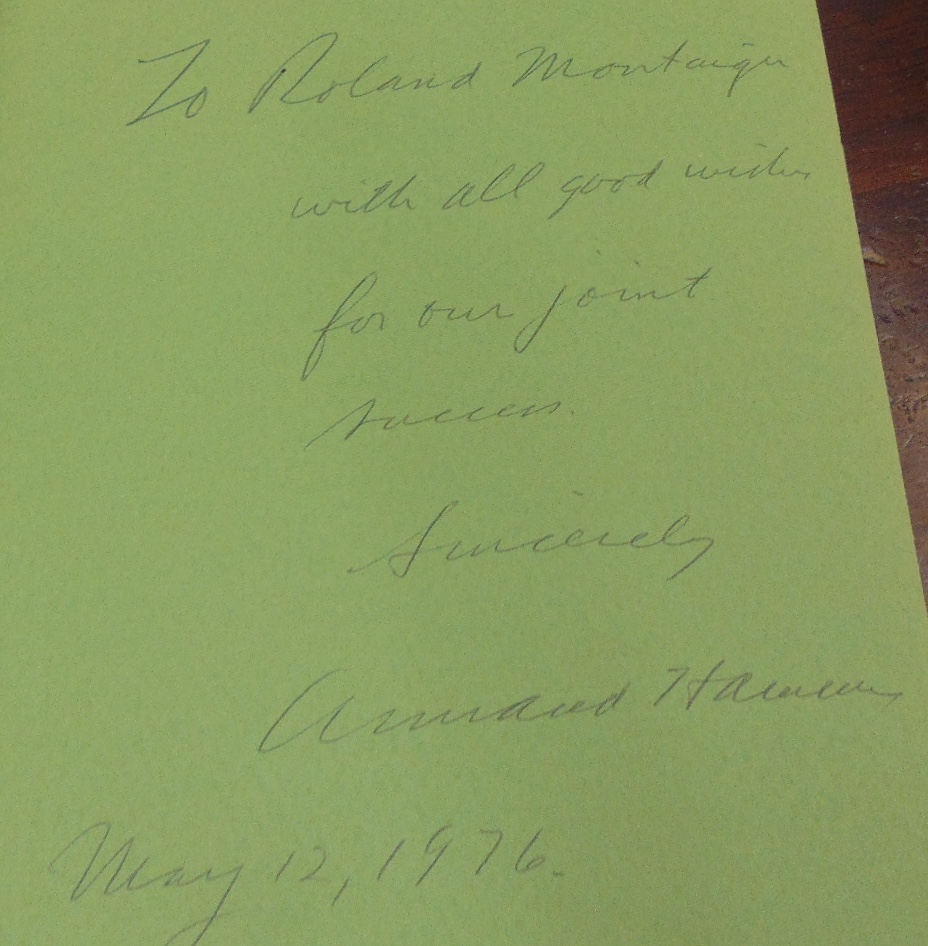 To Roland Montaigu
with all good wishes
for our joint
success.
Sincerely
Armand Hammer
May 12, 1976.